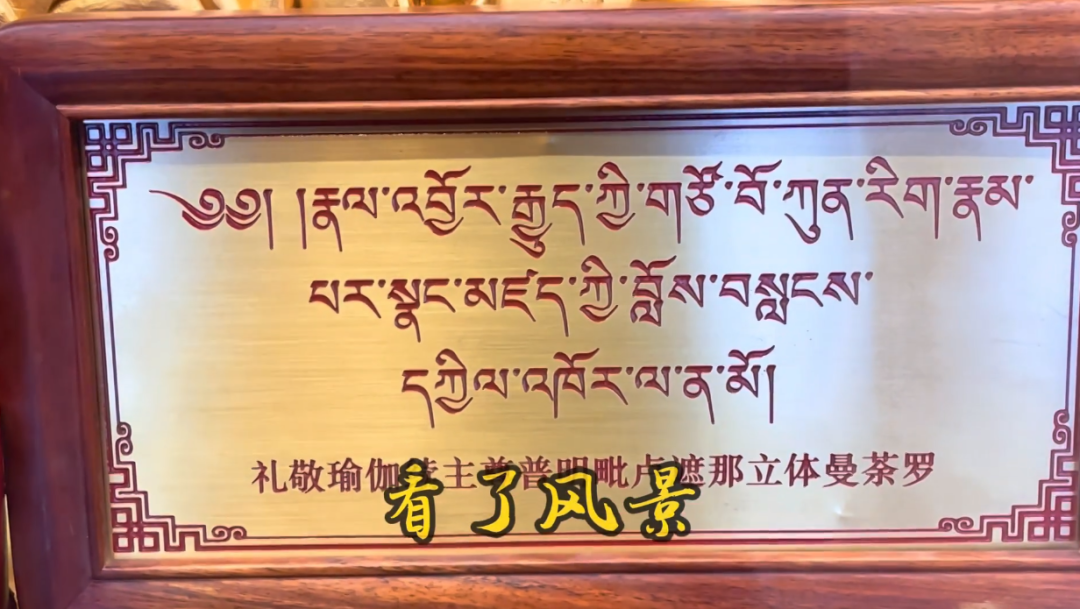 ༄༅། །རྣལ་འབྱོར་རྒྱུད་ཀྱི་གཙོ་བོ་ཀུན་རིག་རྣམ་
པར་སྣང་མཛད་ཀྱི་བློས་བསླངས་
དཀྱིལ་འཁོར་ལ་ན་མོ།
礼敬瑜伽续主尊普明毗卢遮那立体曼荼罗
看了风景